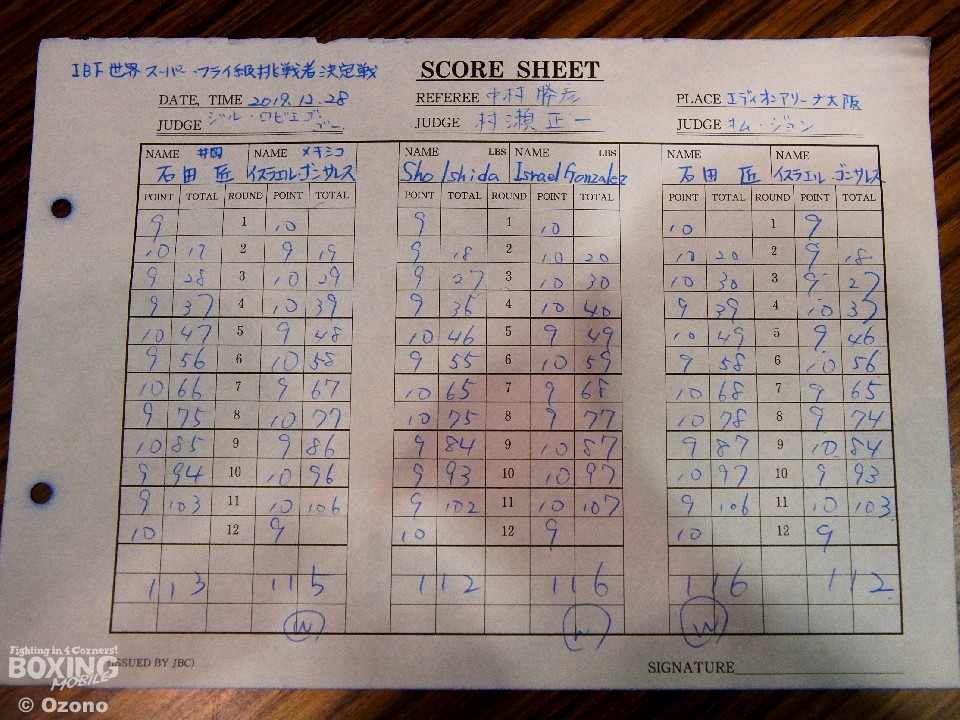 IBF世界スーパーフライ級挑戦者決定戦
SCORE SHEET
DATE, TIME 2019.12.28 REFEREE 中村勝彦 PLACE エディオンアリーナ大阪
JUDGE ジル・ロビエゴンゴー JUDGE 村瀬正一 JUDGE キム・ジョン
NAME 井岡 NAME メキシコ NAME LBS NAME LBS NAME NAME
石田 匠 イスラエル・ゴンサレス Sho Ishida Israel Gonzalez 石田 匠 イスラエル・ゴンサレス
POINT TOTAL ROUND POINT TOTAL POINT TOTAL ROUND POINT TOTAL POINT TOTAL ROUND POINT TOTAL
9 1 10 9 1 10 10 1 9
10 19 2 9 19 9 18 2 10 20 10 20 2 9 18
9 28 3 10 29 9 27 3 10 30 10 30 3 9 27
9 37 4 10 39 9 36 4 10 40 9 39 4 10 37
10 47 5 9 48 10 46 5 9 49 10 49 5 9 46
9 56 6 10 58 9 55 6 10 59 9 58 6 10 56
10 66 7 9 67 10 65 7 9 68 10 68 7 9 65
9 75 8 10 77 10 75 8 9 77 10 78 8 9 74
10 85 9 9 86 9 84 9 10 87 9 87 9 10 84
9 94 10 10 96 9 93 10 10 97 10 97 10 9 93
9 103 11 10 106 9 102 11 10 107 9 106 11 10 103
10 12 9 10 12 9 10 12 9
113 115 112 116 116 112
W W W
ISSUED BY JBC) SIGNATURE
Fighting in 4 Corners!
BOXING
MOBILE
© Ozono